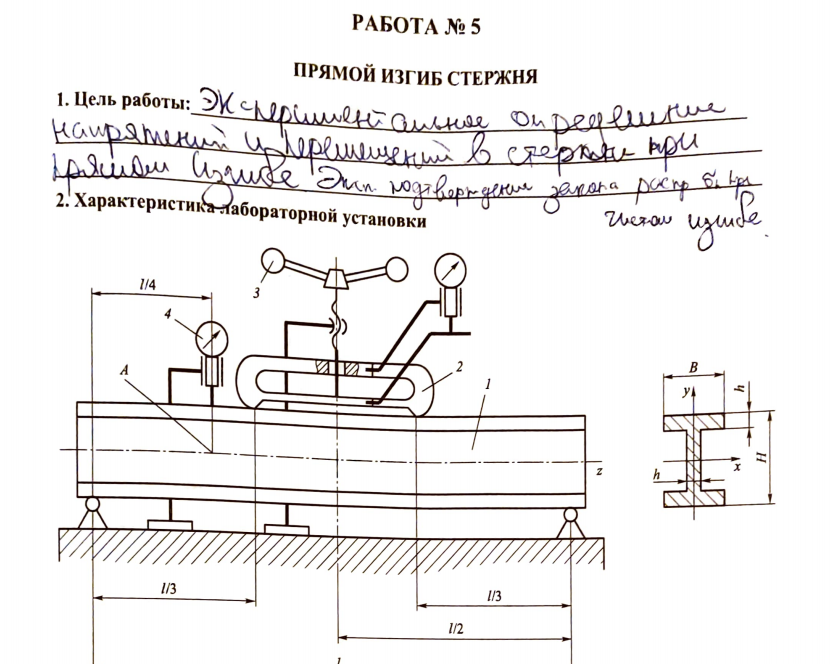 РАБОТА № 5
ПРЯМОЙ ИЗГИБ СТЕРЖНЯ
1. Цель работы: Экспериментальное определение
напряжений и перемещений в стержне при
прямом изгибе Эксп. подтверждение закона распр б. при
чистом изгибе.
2. Характеристика лабораторной установки
l/4
3
4
A
2
1
z
B
y
h
x
h
H
l/3
l/3
l/2
l